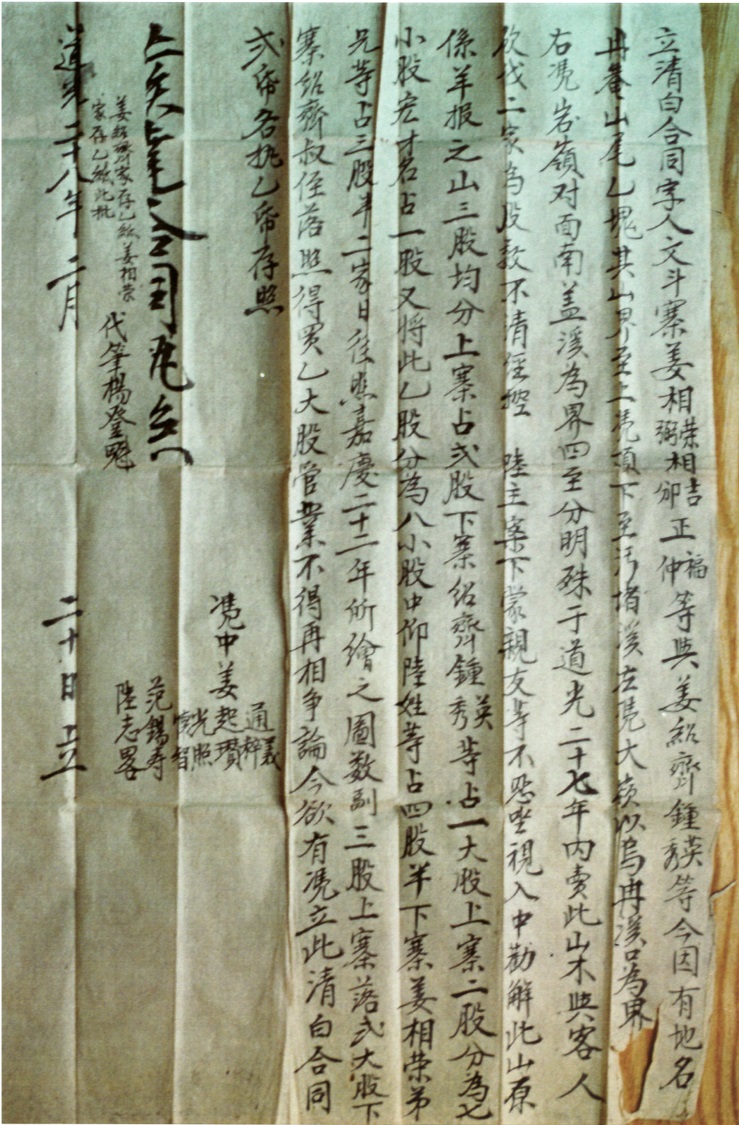 立清白合同字人文斗寨姜相荣相弼相吉相卯正福正仲等與姜紹齊鍾英鍾秀等今因有地名
冉菴山尾乙塊其山界至上凴頂下至污堵溪左凴大嶺以烏冉溪口為界
右凴岩嶺对面南盖溪為界四至分明殊于道光二十七年内賣此山木與客人
砍伐二家為股数不清俓控 陸主案下蒙親友等不忍坐視入中勸解此山原
係羊报之山三股均分上寨占弍股下寨紹齊鍾英秀等占一大股上寨二股分為七
小股宏才名占一股又將此乙股分為八小股中仰陸姓等占四股半下寨姜相荣弟
兄等占三股半二家日後照嘉慶二十二年所繪之圖数副三股上寨落弍大股下
寨紹齊叔侄落照得買乙大股管業不得再相争論今欲有凴立此清白合同
弍帋各执乙帋存照
凴中姜通義 起粹 光瓚 照
范錫寿
陸志畧
合同
姜紹齊家存乙紙姜相荣
家存乙紙此批
代筆楊登魁
道光二十八年二月二十日立